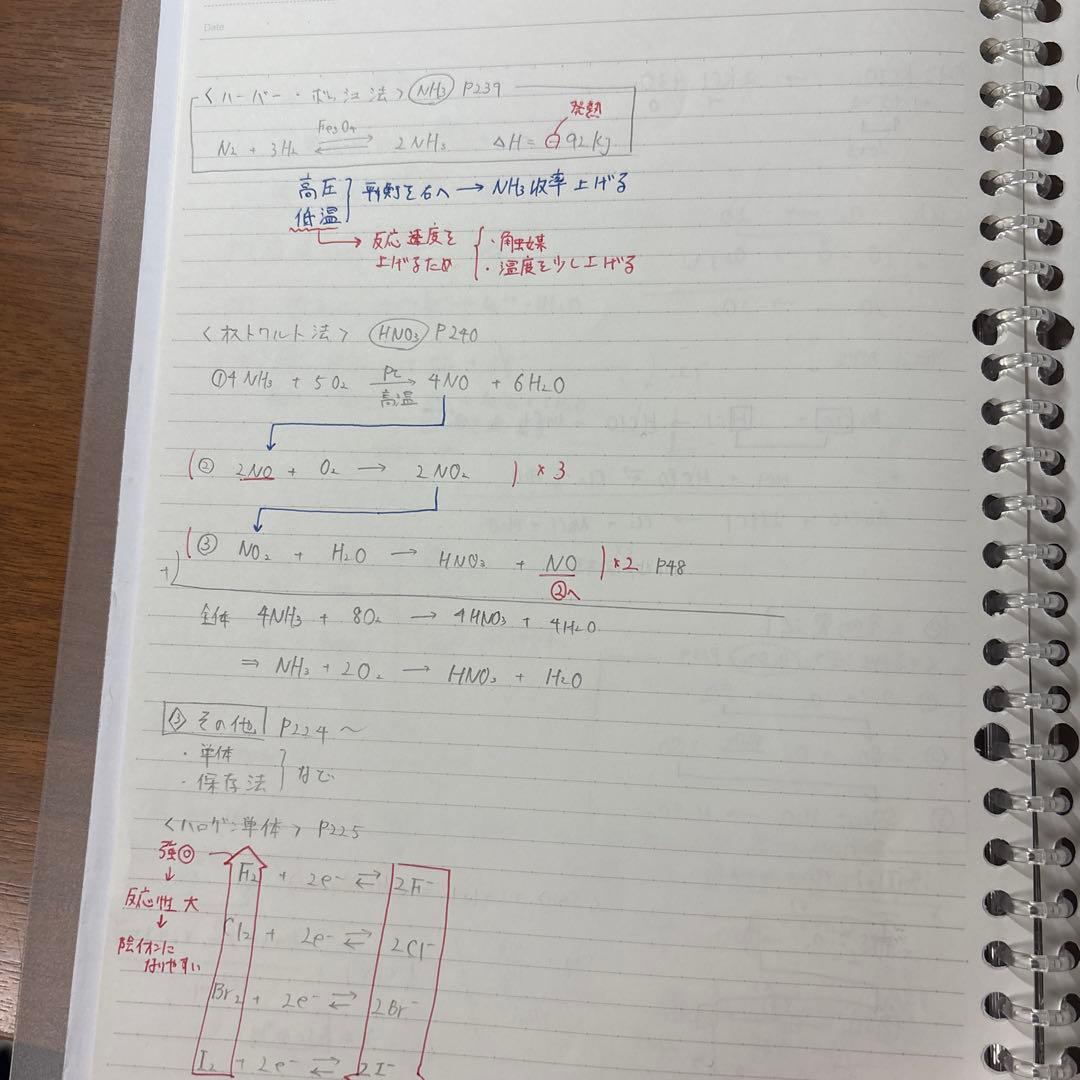 Date
〈ハーバー・ボッシュ法〉 NH₃ P239
発熱
N₂ + 3H₂ ⇄ 2NH₃ ΔH = ⊖92kJ
Fe₃O₄
高圧
低温 } 平衡を右へ → NH₃収率上げる
→ 反応速度を上げるため { ・触媒
・温度を少し上げる
〈オストワルト法〉 HNO₃ P240
① 4NH₃ + 5O₂ → 4NO + 6H₂O
Pt
高温
( ② 2NO + O₂ → 2NO₂ ) ×3
( ③ NO₂ + H₂O → HNO₃ + NO ) ×2 P48
②へ
+)
全体 4NH₃ + 8O₂ → 4HNO₃ + 4H₂O
⇒ NH₃ + 2O₂ → HNO₃ + H₂O
③ その他 P224〜
・単体
・保存法 } など
〈ハロゲン単体〉 P225
強◎
↓
反応性 大
↓
陰イオンに
なりやすい
F₂ + 2e⁻ ⇄ 2F⁻
Cl₂ + 2e⁻ ⇄ 2Cl⁻
Br₂ + 2e⁻ ⇄ 2Br⁻
I₂ + 2e⁻ ⇄ 2I⁻